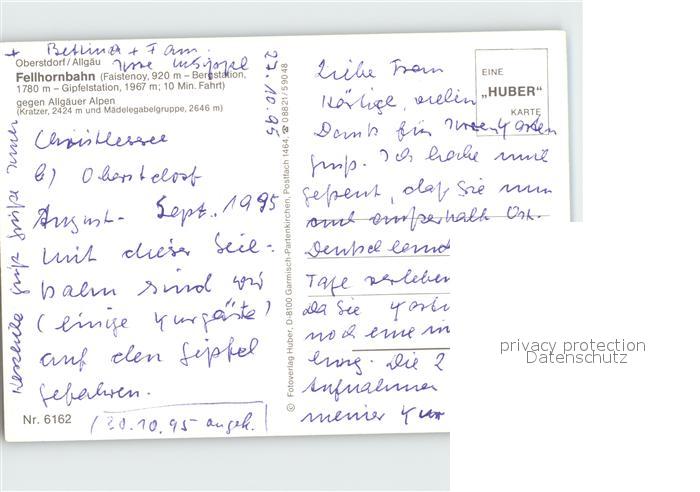 + Bettina + Fam.
Oberstdorf / Allgäu
Fellhornbahn (Faistenoy, 920 m – Bergstation,
1780 m – Gipfelstation, 1967 m; 10 Min. Fahrt)
gegen Allgäuer Alpen
(Kratzer, 2424 m und Mädelegabelgruppe, 2646 m)
Christlessee
b) Oberstdorf
August - Sept. 1995
mit dieser Seil-
bahn sind wir
(einige Kurgäste)
auf den Gipfel
gefahren.
Nr. 6162
(30.10.95 angek.)
Herzliche
27.10.95
© Fotoverlag Huber, D-8100 Garmisch-Partenkirchen, Postfach 1464, ☎ 08821/59048
EINE
„HUBER"
KARTE
Liebe Frau
vielen
Dank für Ihren Karten
gruß. Ich habe mich
gefreut, daß Sie nun
auch außerhalb Ost-
Deutschland
Tage verleben
da Sie
noch eine
Die 2
Aufnahmen
meiner Kur
privacy protection
Datenschutz